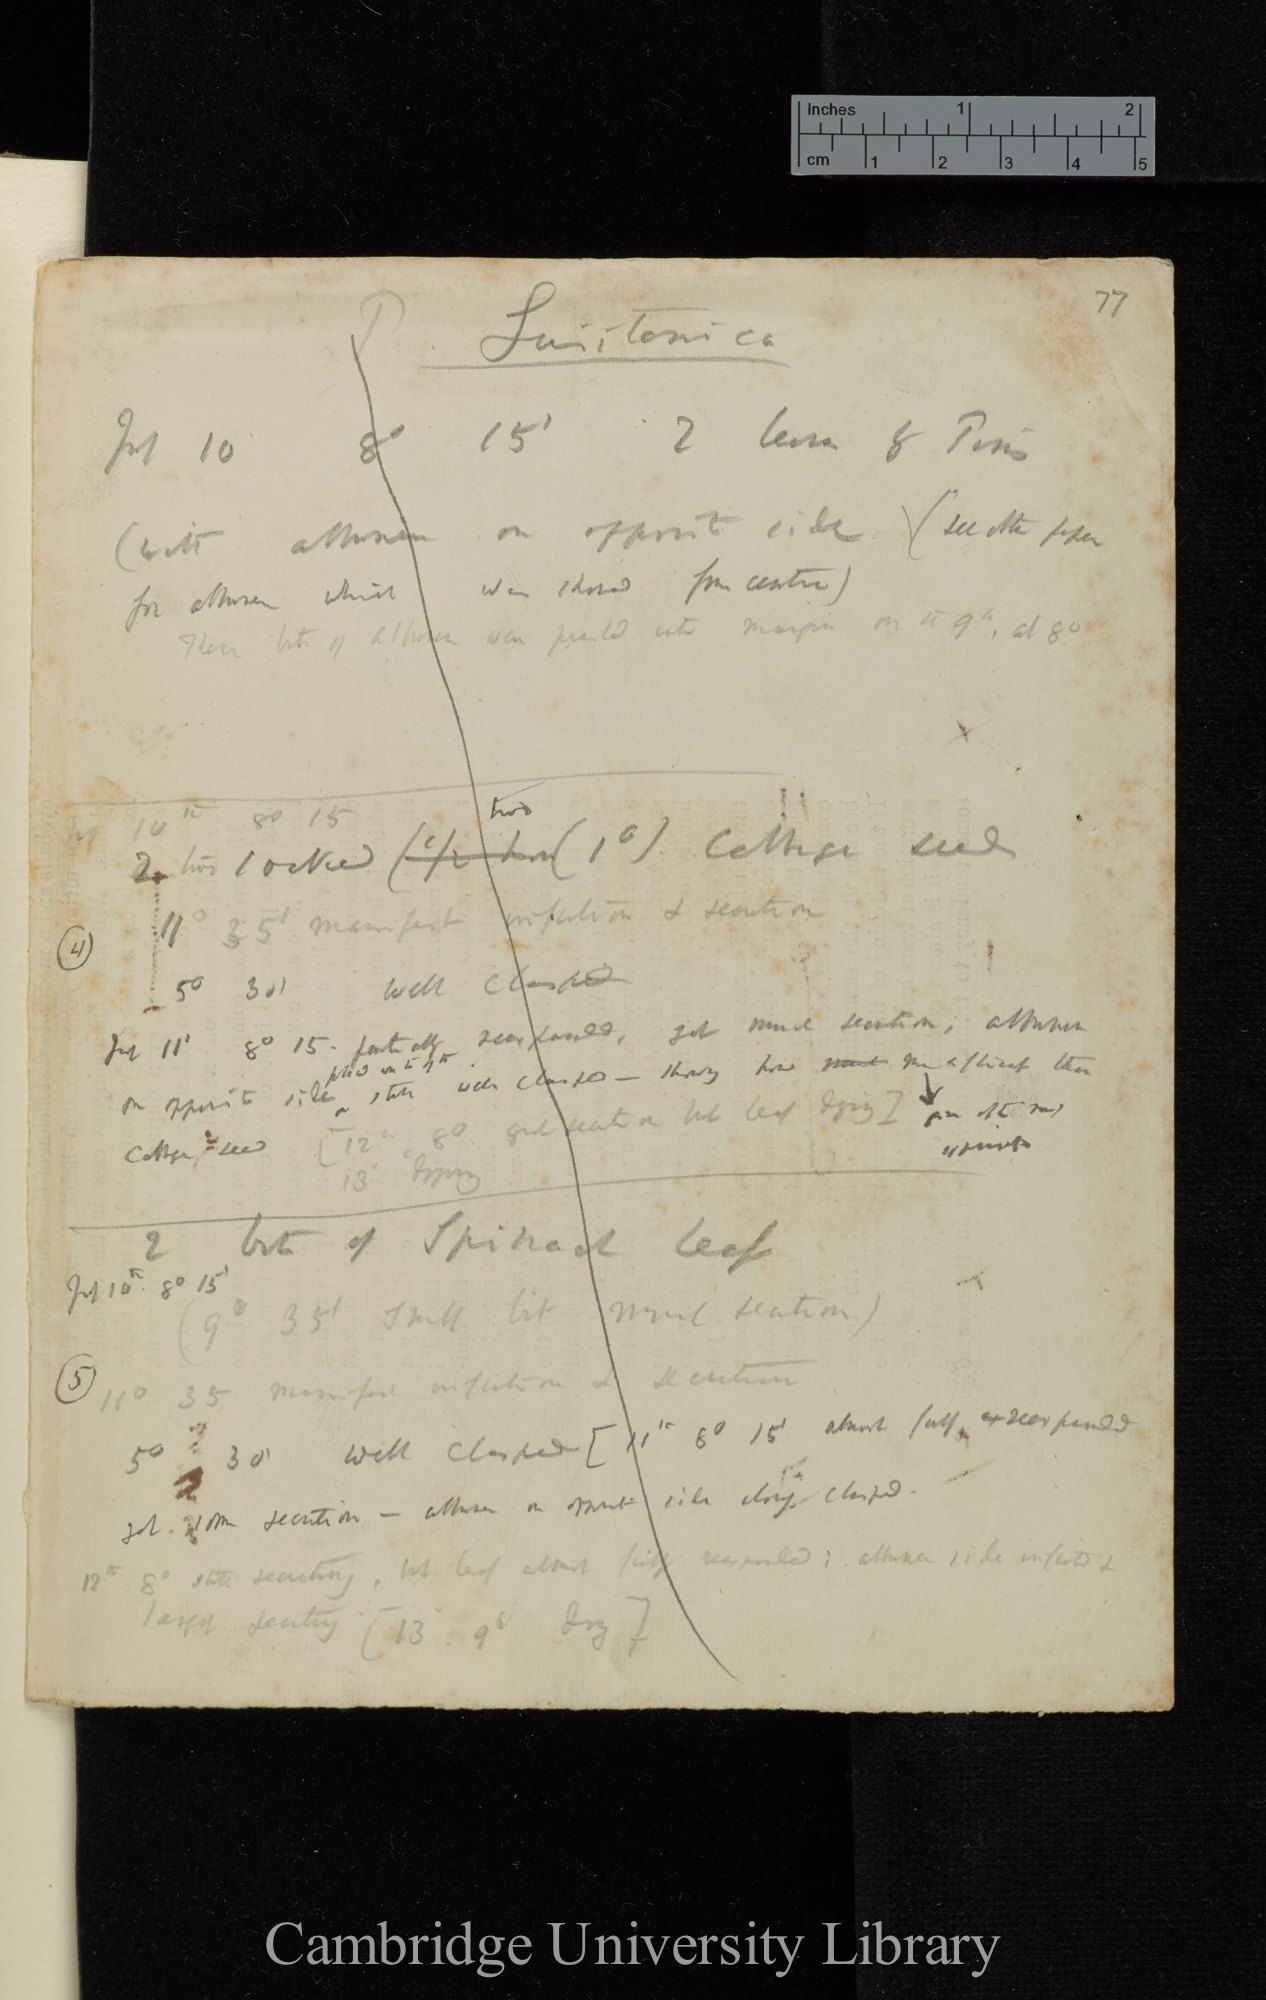 Inches 1 2
cm 1 2 3 4 5
77
P. Lusitanica
July 10 8° 15' 2 leaves of Ping
(with albumen on opposite side (see other paper
for albumen which was thrown from centre)
These bits of albumen were placed into margin on the 9th, at 8°
July 10th 8° 15
two
2 two soaked (1°) Cabbage seeds
11° 35' manifest inflection & secretion
(4)
5° 30' well clasped
July 11' 8° 15 - partially reexpanded, yet much secretion; albumen
placed on the 9th
on opposite side still well clasped — showing how more efficient than
Cabbage-seed [12th 8° good secretion but leaf dying]
experiments
13 dying
2 bits of Spinach leaf
July 10th 8° 15'
(9° 35' small bit much secretion)
(5) 11° 35 manifest inflection & secretion
5° 30' well clasped [11th 8° 15' almost fully reexpanded
yet some secretion — albumen on opposite side closely clasped.
12th 8° still secreting, but leaf almost fully reexpanded; albumen side inflected &
largely secreting [13 9° dry]
Cambridge University Library